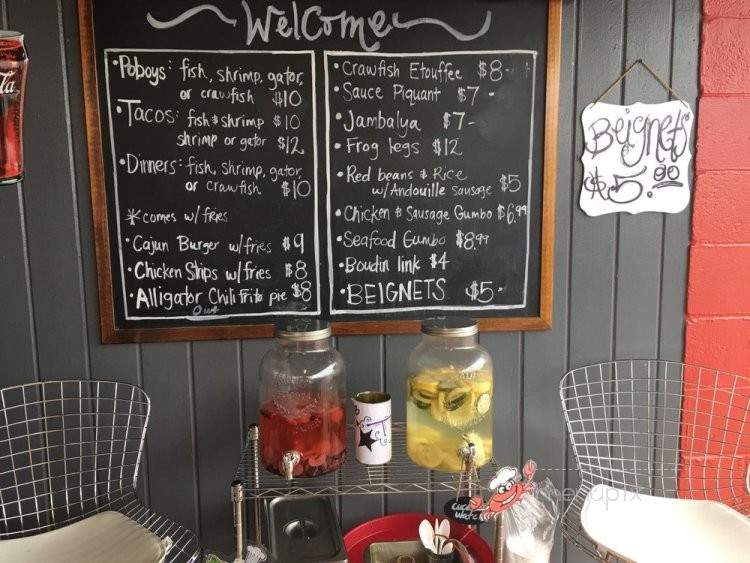 Welcome
• Poboys: fish, shrimp, gator,
or crawfish $10
• Tacos: fish & shrimp $10
shrimp or gator $12
• Dinners: fish, shrimp, gator,
or crawfish $10
* comes w/ fries
• Cajun Burger w/ fries $9
• Chicken Strips w/ fries $8
• Alligator Chili frito pie $8
Out
• Crawfish Etouffee $8-
• Sauce Piquant $7-
• Jambalya $7-
• Frog legs $12
• Red beans & Rice
w/ Andouille Sausage $5
• Chicken & Sausage Gumbo $6.99
• Seafood Gumbo $8.99
• Boudin link $4
• BEIGNETS $5-
Beignets
$5.00